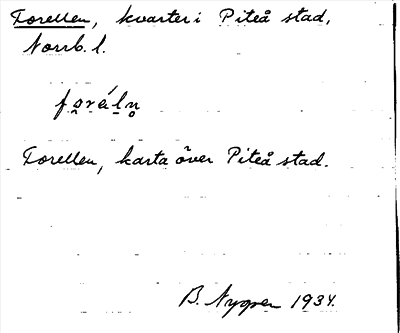 Forellen, kvarter i Piteå stad,
Norrb. l.
foréln
Forellen, karta över Piteå stad.
B. Nygren 1934.